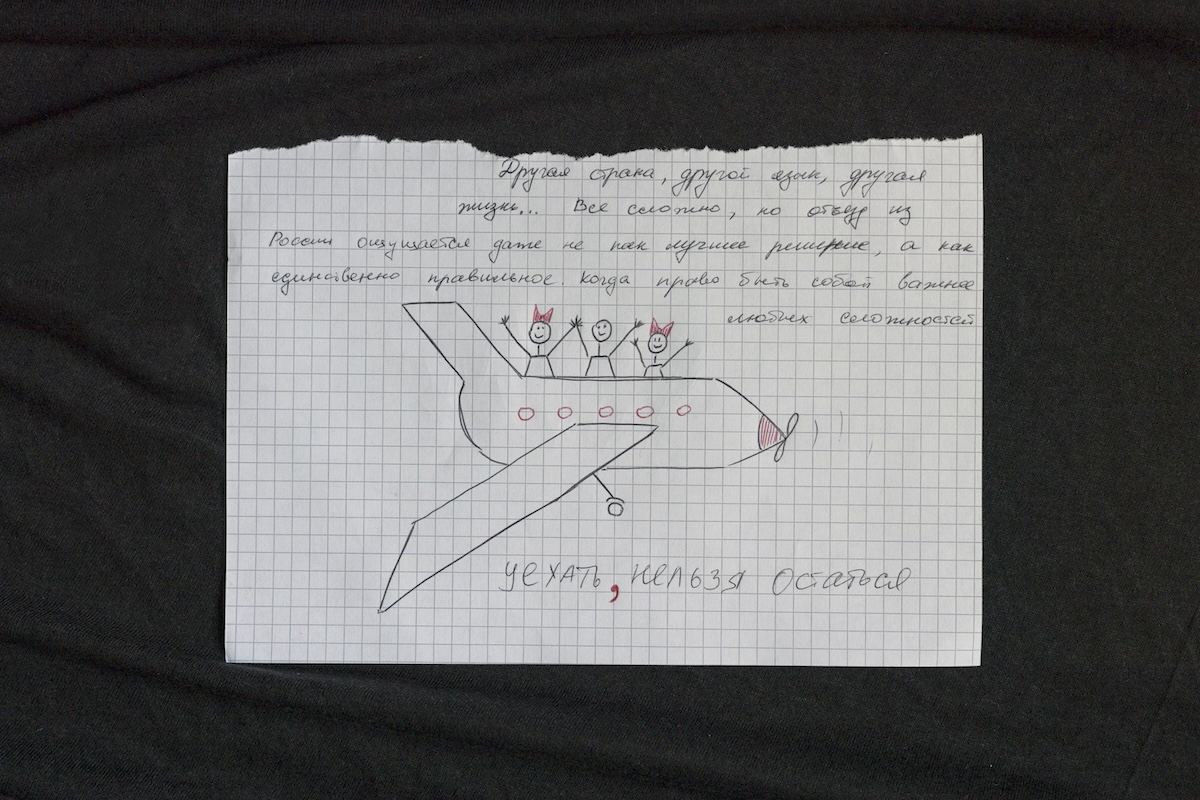 Другая страна, другой язык, другая
жизнь... Все сложно, но отъезд из
России ощущается даже не как лучшее решение, а как
единственно правильное. Когда право быть собой важнее
любых сложностей
УЕХАТЬ, НЕЛЬЗЯ ОСТАТЬСЯ